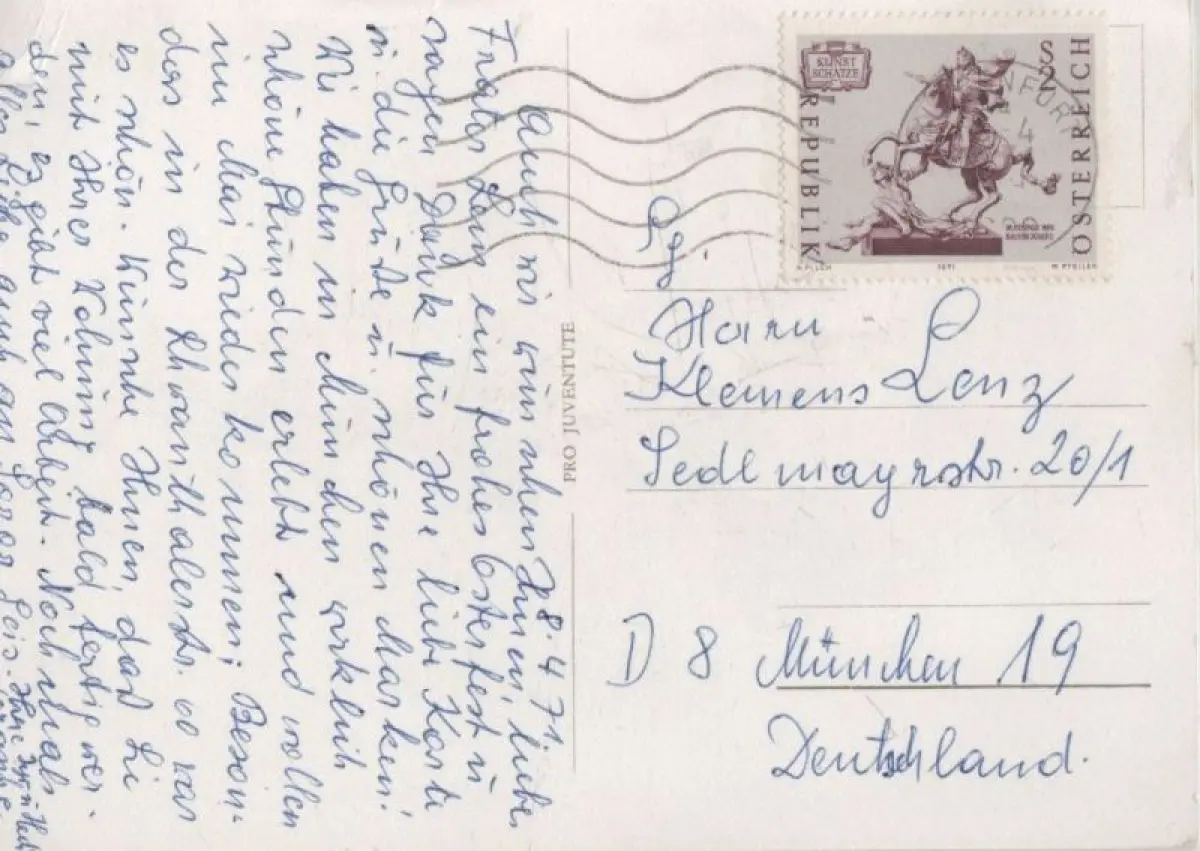 8.4.71.
Auch wir wünschen Ihnen, lieber
Frater Lenz ein frohes Osterfest u.
sagen Dank für Ihre liebe Karte
u. die Grüße u. schönen Marken!
Wir haben in München wirklich
schöne Stunden erlebt und wollen
im Mai wieder kommen; Beson-
ders in der Schwanthalerstr. 60 war
es schön. Wünsche Ihnen, daß Sie
mit Ihrer Wohnung bald fertig wer-
den, es gibt viel Arbeit. Nochmals
alles Liebe auch an
PRO JUVENTUTE
KUNST
SCHÄTZE
S 2
REPUBLIK
ÖSTERREICH
A. PILCH
1971
M. PFEILER
Herrn
Klemens Lenz
Sedlmayrstr. 20/1
D 8 München 19
Deutschland.